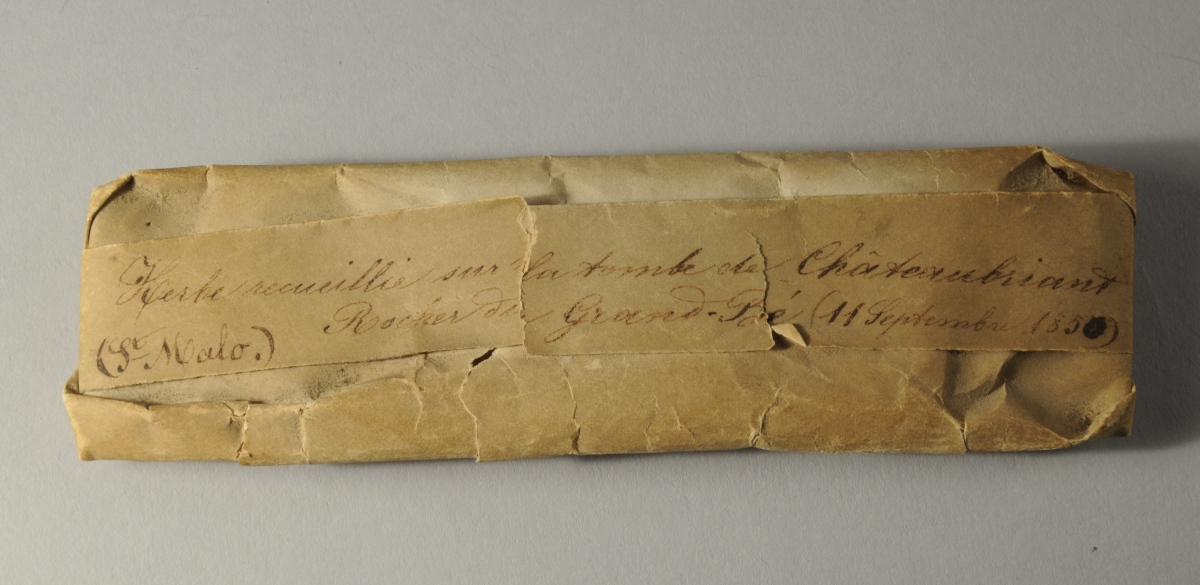 Herbe recueillie sur la tombe de Châteaubriant
Rocher du Grand-Bé (11 Septembre
(St Malo.)